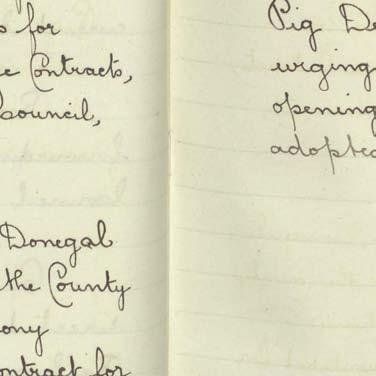 for
Contracts,
Council,
Donegal
the County
ony
ontract for
Pig De
urging
opening
adopted